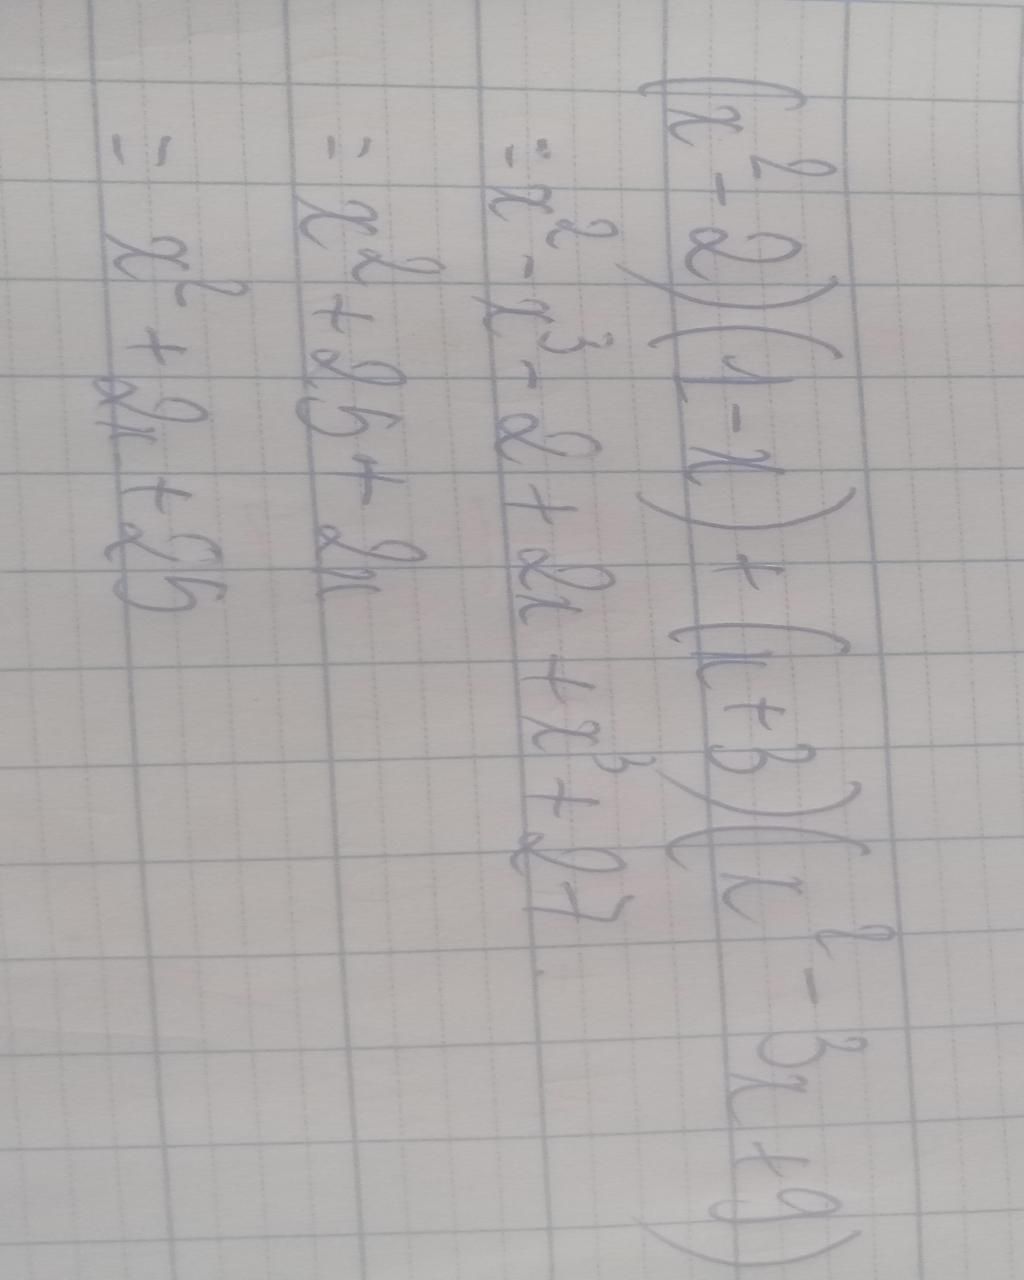 (x² - 2)(1 - x) + (x + 3)(x² - 3x + 9)
= x² - x³ - 2 + 2x + x³ + 27
= x² + 25 + 2x
= x² + 2x + 25